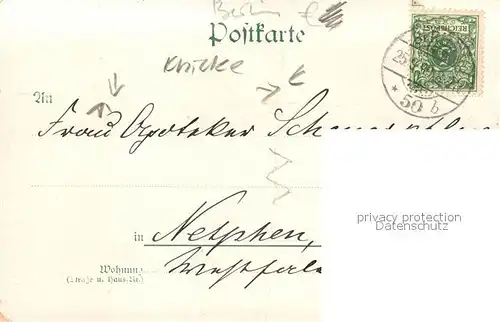 Berlin
Postkarte
Knicke
An
Frau Apoteker
in Netphen,
Westfale
Wohnung
(Straße u. Haus-Nr.)
REICHSPOST
25
* 50 b
privacy protection
Datenschutz